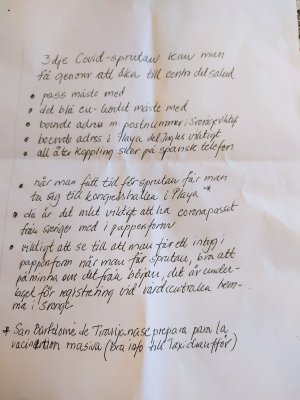 3dje Covid-sprutan kan man
få genom att åka till centro del salud
• pass måste med
• det blå eu-kortet måste med
• boende adress m. postnummer i Sverige viktigt
• boende adress i Playa del Ingles viktigt
• all återkoppling sker på spansk telefon
• när man fått tid för sprutan får man
ta sig till kongresshallen i Playa *
• då är det mkt viktigt att ha coronapasset
från sverige med i pappersform
• viktigt att se till att man får ett intyg i
pappersform när man får sprutan, bra att
påminna om det från början, det är under-
laget för registrering vid vårdcentralen hem-
ma i Sverige
* San Bartolomé de Tirajana se prepara para la
vacunation masiva (bra info till Taxichaufför)